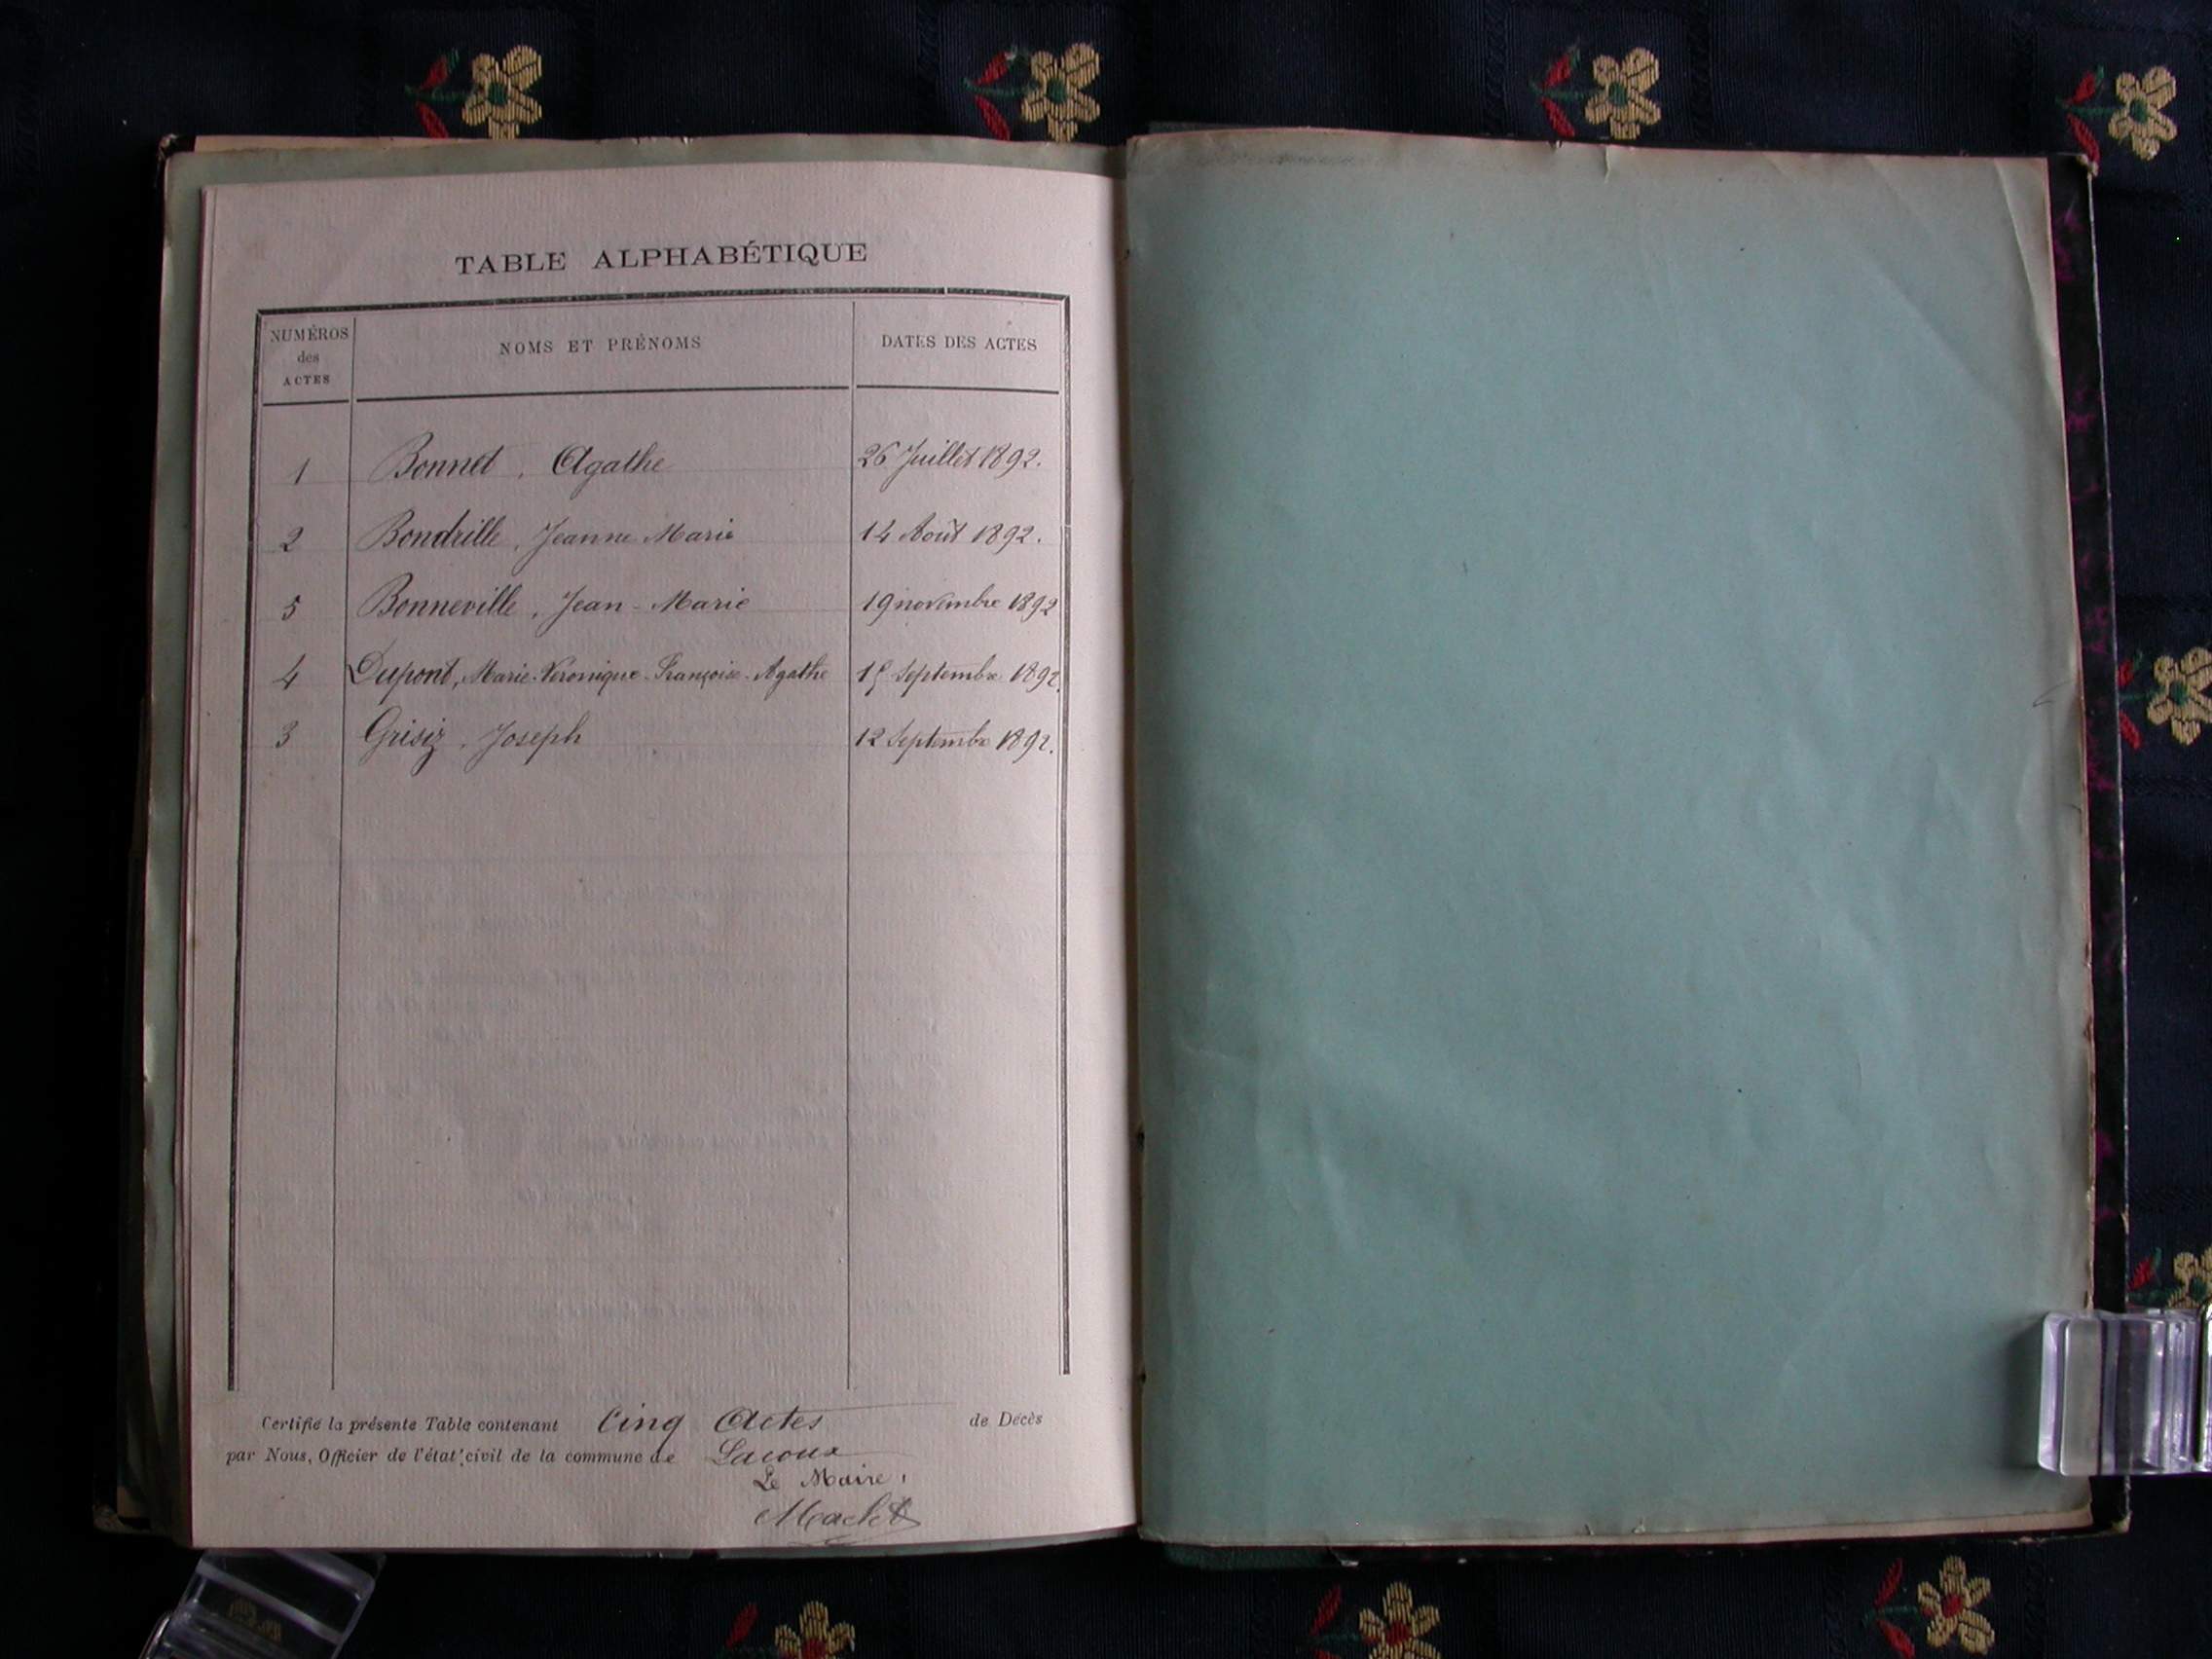 TABLE ALPHABÉTIQUE
NUMÉROS
des
ACTES
NOMS ET PRÉNOMS
DATES DES ACTES
1 Bonnet, Agathe 26 Juillet 1892.
2 Bondrille, Jeanne Marie 14 Août 1892.
5 Bonneville, Jean-Marie 19 novembre 1892
4 Dupont, Marie-Véronique-Françoise-Agathe 15 Septembre 1892.
3 Grisiz, Joseph 12 Septembre 1892.
Certifié la présente Table contenant Cinq Actes de Décès
par Nous, Officier de l'état civil de la commune de Lacoux
Le Maire,